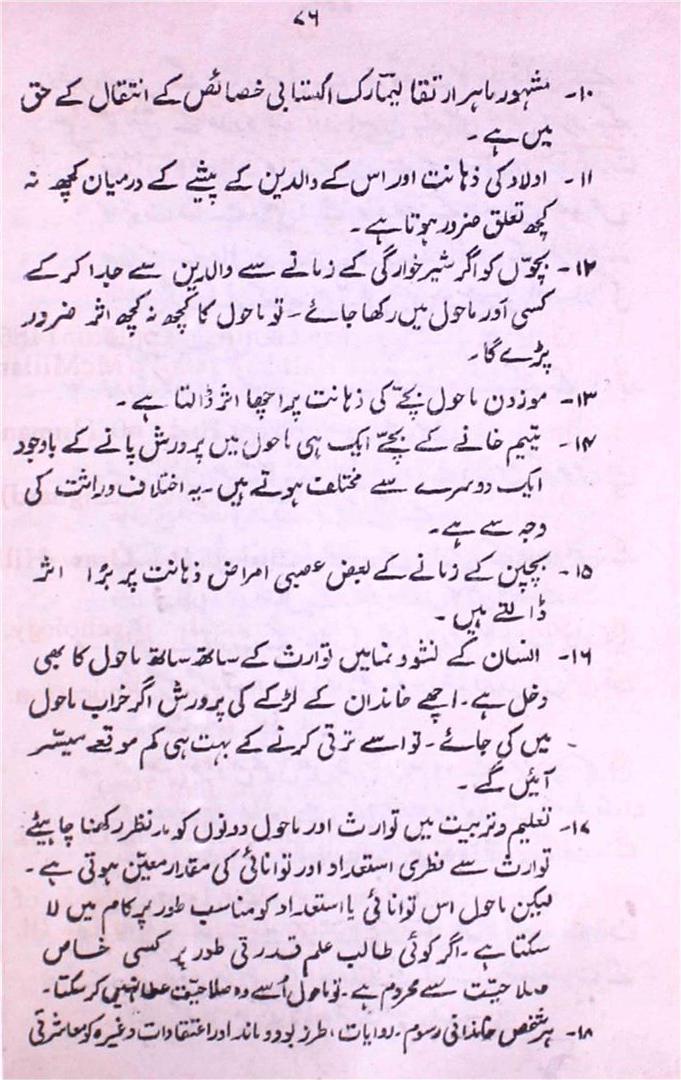 ۷۶
۱۰۔ مشہور ماہر ارتقا لیمارک اکتسابی خصائص کے انتقال کے حق
میں ہے۔
۱۱۔ اولاد کی ذہانت اور اس کے والدین کے پیشے کے درمیان کچھ نہ
کچھ تعلق ضرور ہوتا ہے۔
۱۲۔ بچوں کو اگر شیر خوارگی کے زمانے سے والدین سے جدا کر کے
کسی اور ماحول میں رکھا جائے۔ تو ماحول کا کچھ نہ کچھ اثر ضرور
پڑے گا۔
۱۳۔ موزوں ماحول بچے کی ذہانت پر اچھا اثر ڈالتا ہے۔
۱۴۔ یتیم خانے کے بچے ایک ہی ماحول میں پرورش پانے کے باوجود
ایک دوسرے سے مختلف ہوتے ہیں۔ یہ اختلاف وراثت کی
وجہ سے ہے۔
۱۵۔ بچپن کے زمانے کے بعض عصبی امراض ذہانت پر بڑا اثر
ڈالتے ہیں۔
۱۶۔ انسان کے نشوونما میں توارث کے ساتھ ساتھ ماحول کا بھی
دخل ہے۔ اچھے خاندان کے لڑکے کی پرورش اگر خراب ماحول
میں کی جائے۔ تو اسے ترقی کرنے کے بہت ہی کم موقعے میسّر
آئیں گے۔
۱۷۔ تعلیم و تربیت میں توارث اور ماحول دونوں کو مدنظر رکھنا چاہیئے
توارث سے فطری استعداد اور توانائی کی مقدار معین ہوتی ہے۔
لیکن ماحول اس توانائی یا استعداد کو مناسب طور پر کام میں لا
سکتا ہے۔ اگر کوئی طالب علم قدرتی طور پر کسی خاص
صلاحیت سے محروم ہے۔ تو ماحول اُسے وہ صلاحیت عطا نہیں کر سکتا۔
۱۸۔ ہر شخص خاندانی رسوم۔ روایات، طرز بود و ماند اور اعتقادات وغیرہ کو معاشرتی